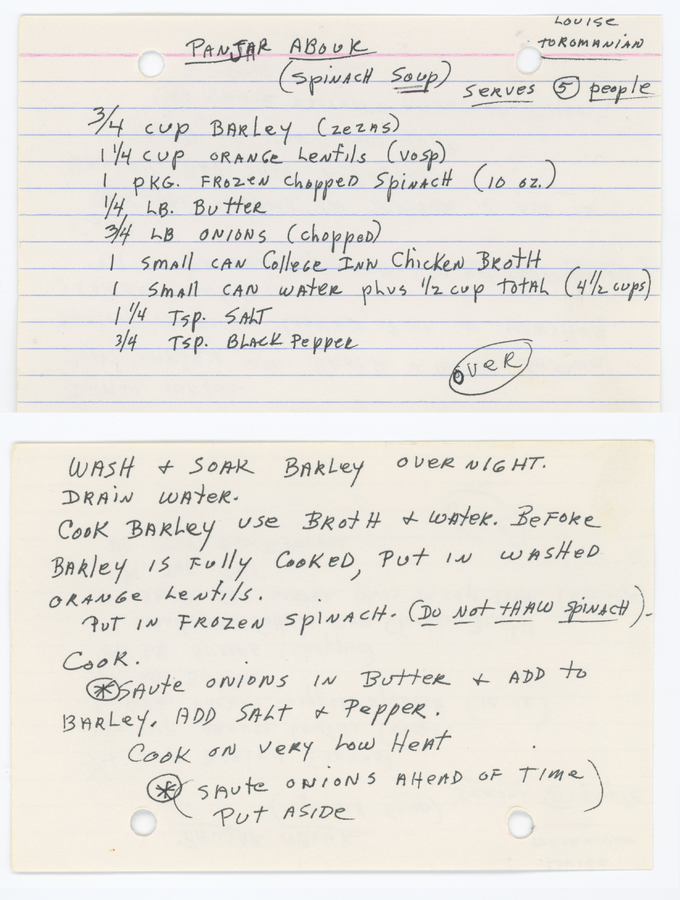 LOUISE
TOROMANIAN
PANJAR ABOUR
(SPINACH SOUP)
SERVES 5 people
3/4 cup BARLEY (zezas)
1 1/4 cup ORANGE Lentils (vosp)
1 PKG. FROZEN Chopped Spinach (10 oz.)
1/4 LB. Butter
3/4 LB ONIONS (chopped)
1 SMALL CAN College INN Chicken BROTH
1 SMALL CAN WATER plus 1/2 cup TOTAL (4 1/2 cups)
1 1/4 Tsp. SALT
3/4 Tsp. BLACK Pepper
OVER
WASH + SOAK BARLEY OVERNIGHT.
DRAIN WATER.
COOK BARLEY USE BROTH + WATER. BEFORE
BARLEY IS FULLY COOKED, PUT IN WASHED
ORANGE Lentils.
PUT IN FROZEN SPINACH. (DO NOT THAW SPINACH).
COOK.
* SAUTE ONIONS IN BUTTER + ADD TO
BARLEY. ADD SALT + Pepper.
COOK ON VERY LOW HEAT
* (SAUTE ONIONS AHEAD OF TIME)
PUT ASIDE